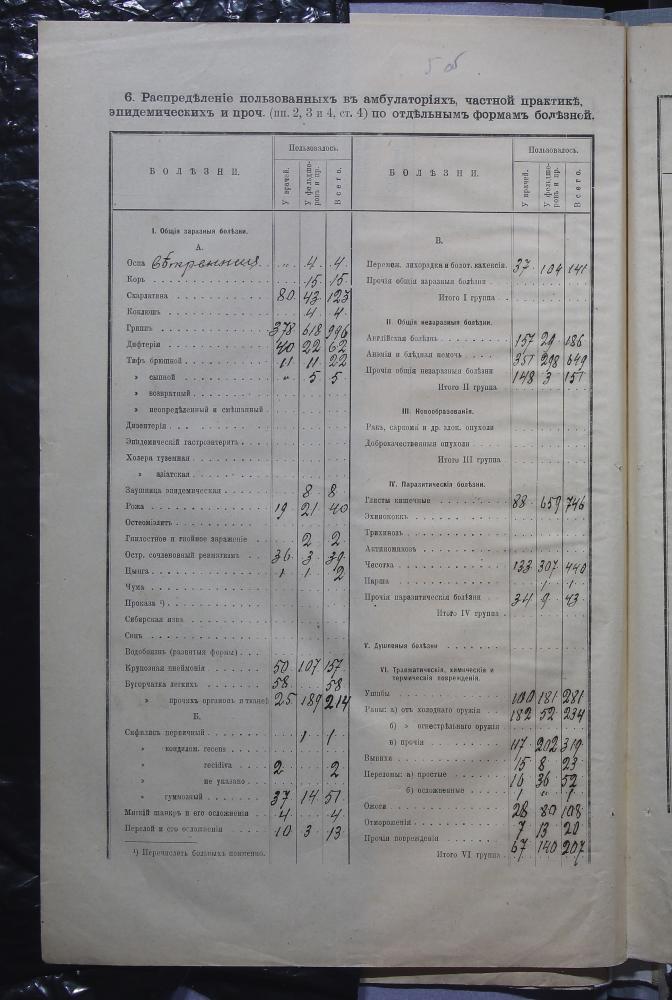 5 об
6. Распредѣленіе пользованныхъ въ амбулаторіяхъ, частной практикѣ,
эпидемическихъ и проч. (пп. 2, 3 и 4, ст. 4) по отдѣльнымъ формамъ болѣзней.
БОЛѢЗНИ. Пользовалось. У врачей. У фельдшеровъ и пр. Всего.
I. Общія заразныя болѣзни.
А.
Оспа вѣтренная " 4 4
Корь 15 15
Скарлатина 80 43 123
Коклюшъ 4 4
Гриппъ 378 618 996
Дифтерія 40 22 62
Тифъ брюшной 11 11 22
» сыпной " 5 5
» возвратный
» неопредѣленный и смѣшанный
Дизентерія
Эпидемическій гастроэнтеритъ
Холера туземная
» азіатская
Заушница эпидемическая 8 8
Рожа 19 21 40
Остеоміэлитъ
Гнилостное и гнойное зараженіе 2 2
Остр. сочленовный ревматизмъ 36 3 39
Цынга 1 1 2
Чума
Проказа ¹)
Сибирская язва
Сапъ
Водобоязнь (развитыя формы)
Крупозная пнеймонія 50 107 157
Бугорчатка легкихъ 58 58
» прочихъ органовъ и тканей 25 189 214
Б.
Сифилисъ первичный 1 1
» кондилом. recens
» recidiva 2 2
» не указано
» гуммозный 37 14 51
Мягкій шанкръ и его осложненія 4 4
Перелой и его осложненія 10 3 13
¹) Перечислить больныхъ поименно.
БОЛѢЗНИ. Пользовалось. У врачей. У фельдшеровъ и пр. Всего.
В.
Перемеж. лихорадка и болот. кахексія. 37 104 141
Прочія общія заразныя болѣзни
Итого I группа
II. Общія незаразныя болѣзни.
Англійская болѣзнь 157 29 186
Анэмія и блѣдная немочь 351 298 649
Прочія общія незаразныя болѣзни 148 3 151
Итого II группа
III. Новообразованія.
Ракъ, саркома и др. злок. опухоли
Доброкачественныя опухоли
Итого III группа
IV. Паразитическія болѣзни.
Глисты кишечные 88 659 746
Эхинококкъ
Трихинозъ
Актиномикозъ
Чесотка 133 307 440
Парша 1 1
Прочія паразитическія болѣзни 34 9 43
Итого IV группа
V. Душевныя болѣзни
VI. Травматическія, химическія и
термическія поврежденія.
Ушибы 100 181 281
Раны: а) отъ холоднаго оружія 182 52 234
б) » огнестрѣльнаго оружія
в) прочія 117 202 319
Вывихи 15 8 23
Переломы: а) простые 16 36 52
б) осложненные 1 " 1
Ожоги 28 80 108
Отмороженія 7 13 20
Прочія поврежденія 67 140 207
Итого VI группа